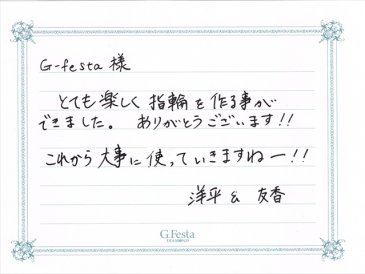 G-festa 様
とても楽しく 指輪を作る事が
できました。 ありがとうございます!!
これから大事に使っていきますねー!!
洋平 & 友香
G.Festa